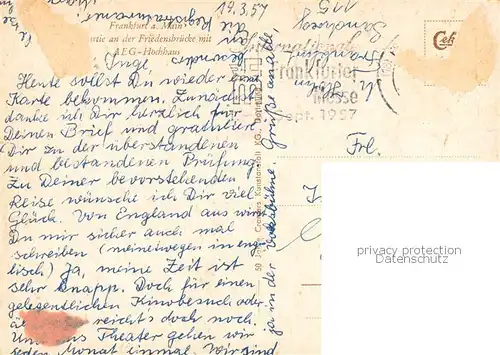 19.3.57
Frankfurt a. Main
Partie an der Friedensbrücke mit
AEG-Hochhaus
Cek
Frankfurter
Messe
Sept. 1957
Inge
Heute sollst Du wieder eine
Karte bekommen. Zunächst
danke ich Dir herzlich für
Deinen Brief und gratuliere
Dir zu der überstandenen
und bestandenen Prüfung.
Zu Deiner bevorstehenden
Reise wünsche ich Dir viel
Glück. Von England aus wirst
Du mir sicher auch mal
schreiben (meinetwegen in eng
lisch) Ja, meine Zeit ist
sehr knapp. Doch für einen
gelegentlichen Kinobesuch oder
reicht's doch noch.
Und ins Theater gehen wir
jeden Monat einmal. Wir sind
ja in der Volksbühne. Grüße an alle
Frl.
50 Jahre Cramers Kunstanstalt KG., Dortmund
privacy protection